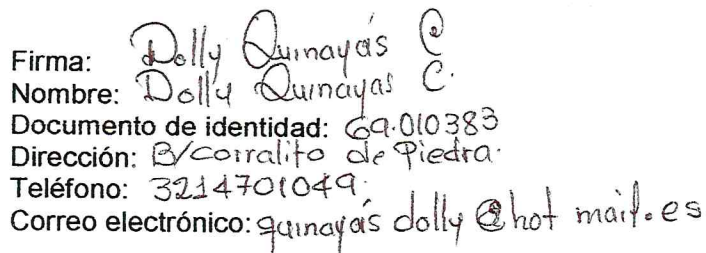 Firma: Dolly Quinayás C
Nombre: Dolly Quinayas C.
Documento de identidad: 69.010383
Dirección: B/corralito de Piedra.
Teléfono: 3214701049.
Correo electrónico: quinayás dolly @hot mail.es